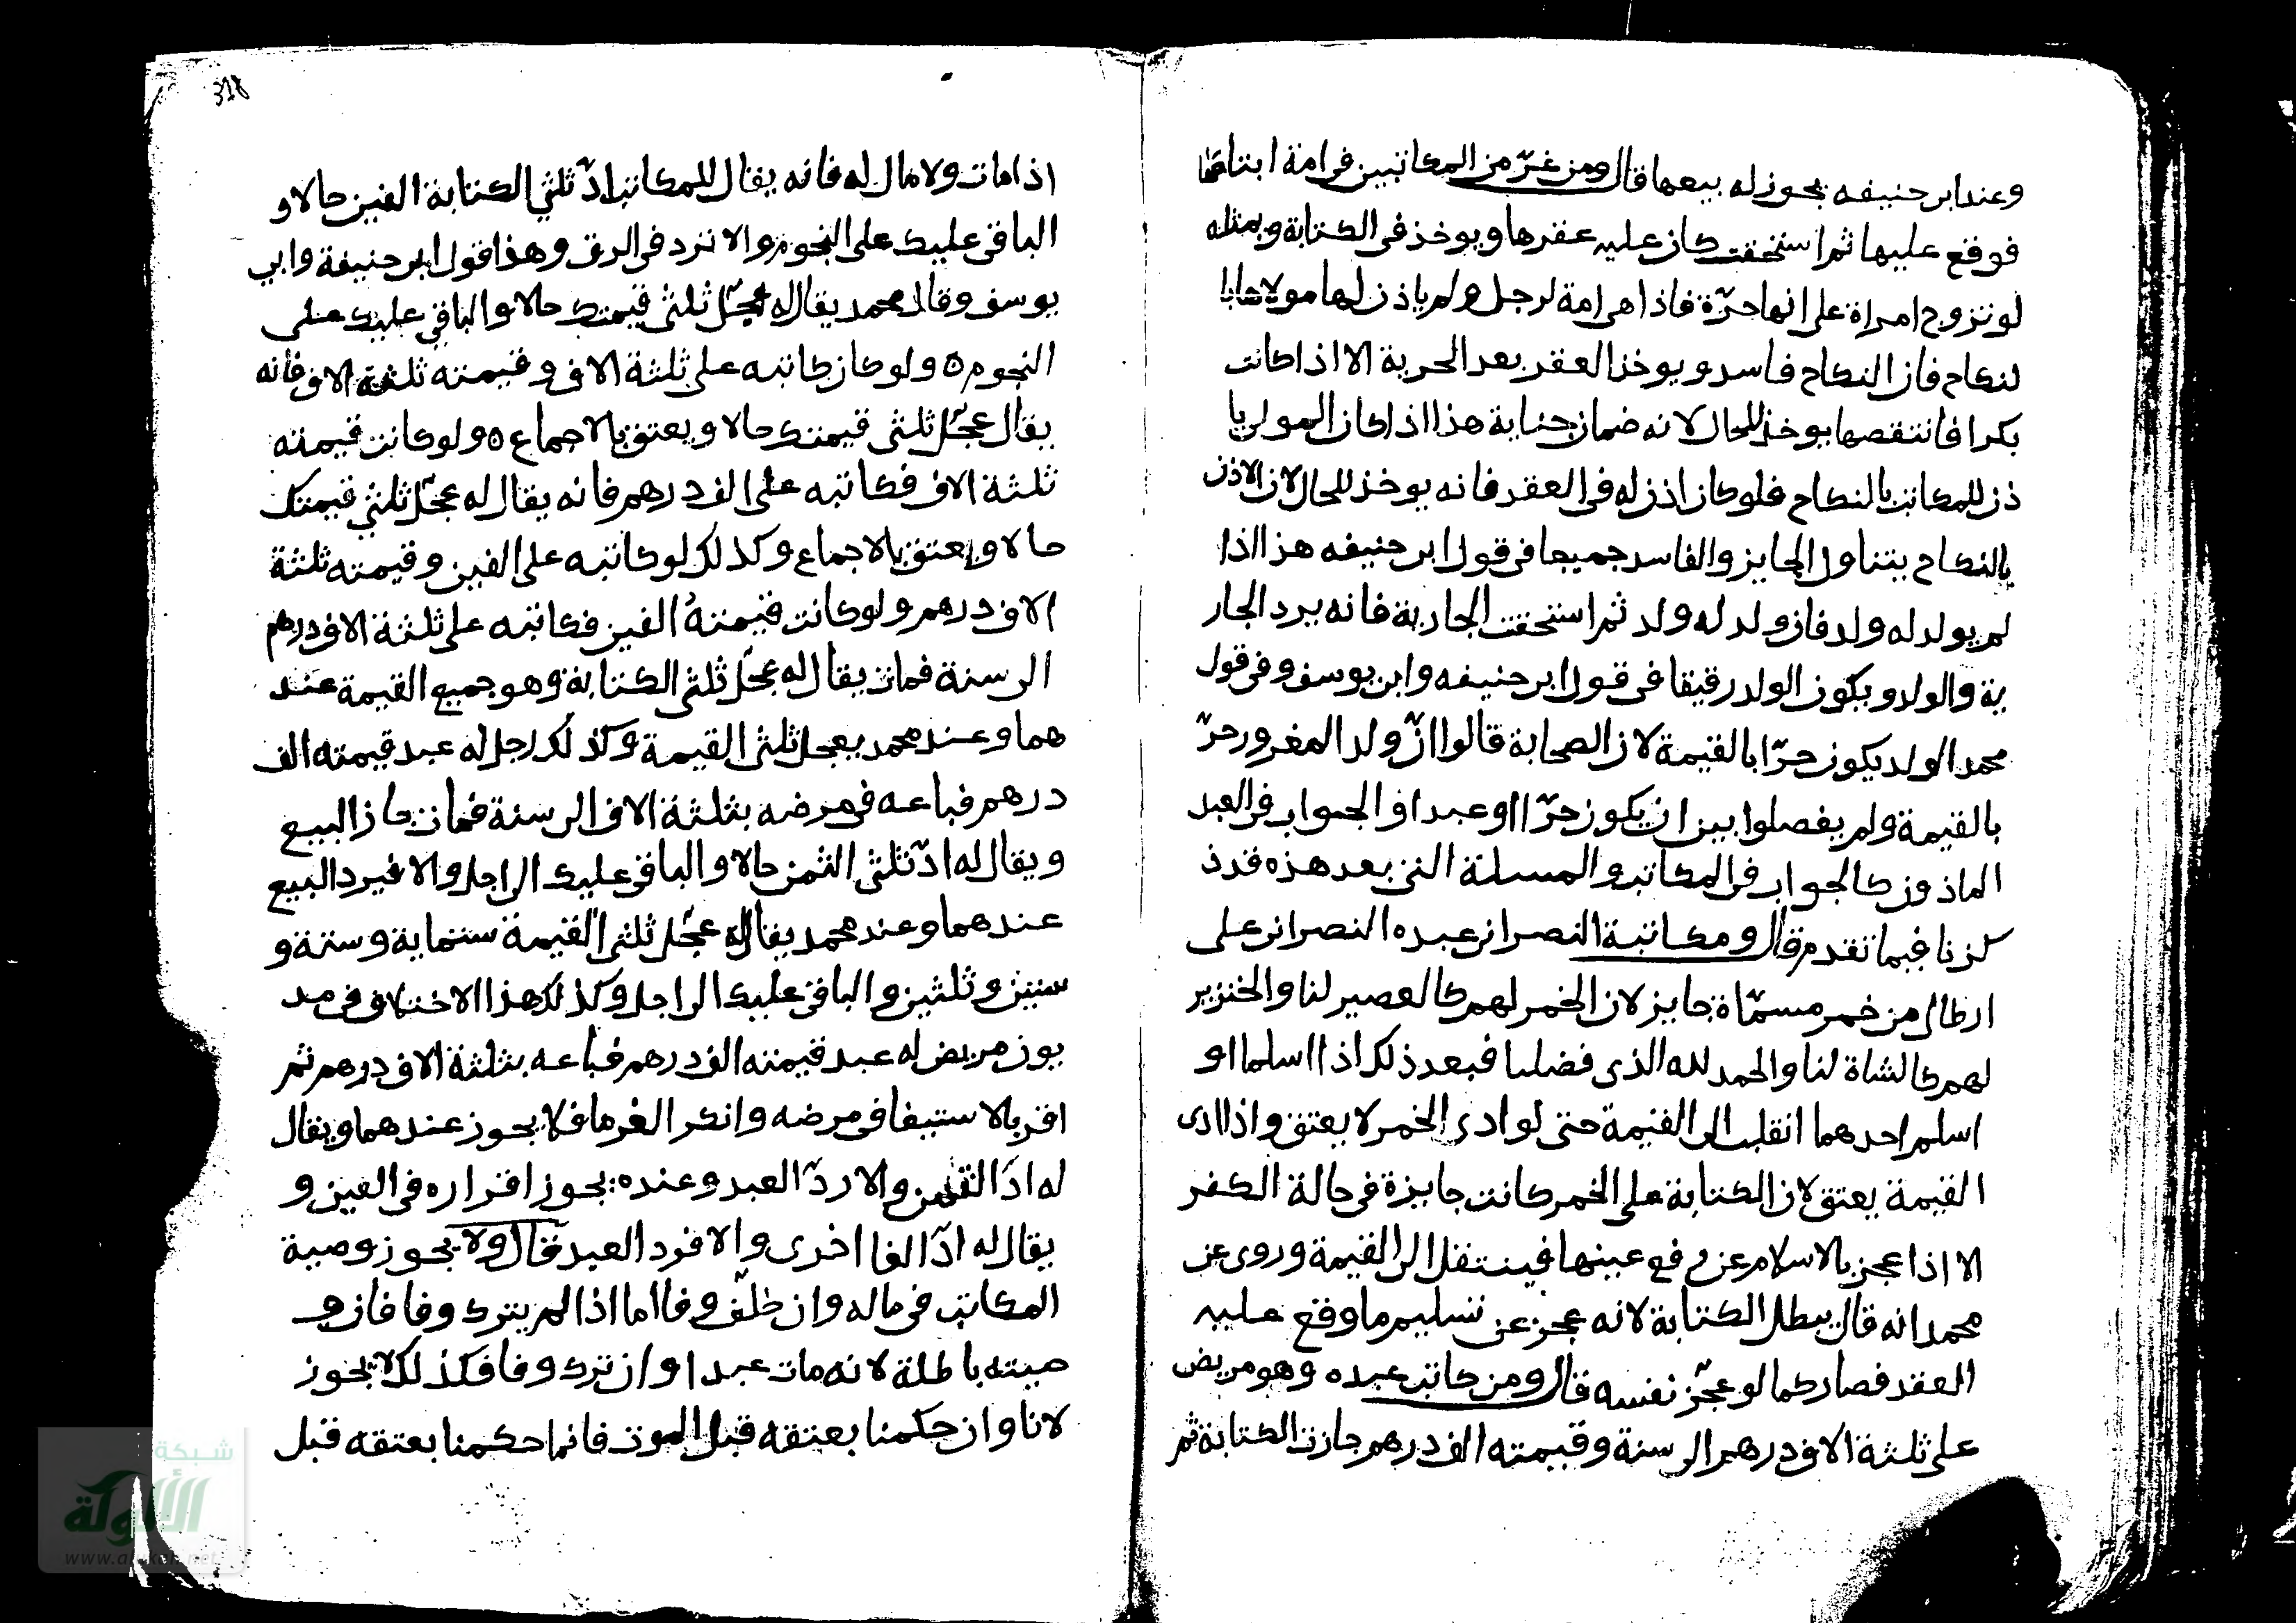 وعند ابى حنيفه يجوز له بيعها قال ومن غرّ من المكاتبين فى امة ابتاعها
فوقع عليها ثم استحقت كان عليه عقرها ويوخذ فى الكتابة وبمثله
لو تزوج امراة على انها حرّة فاذا هى امة لرجل ولم ياذن لها مولاها با
لنكاح فان النكاح فاسد ويوخذ العقر بعد الحرية الا اذا كانت
بكرا فانتقصها يوخذ للحال لانه ضمان جناية هذا اذا كان المولى يا
ذن للمكاتب بالنكاح فلو كان اذن له فى العقد فانه يوخذ للحال لان الاذن
بالنكاح يتناول الجايز والفاسد جميعا فى قول ابى حنيفه هذا اذا
لم يولد له ولد فان ولد له ولد ثم استحقت الجارية فانه يرد الجار
ية والولد ويكون الولد رقيقا فى قول ابى حنيفه وابى يوسف وفى قول
محمد الولد يكون حرّا بالقيمة لان الصحابة قالوا انّ ولد المغرور حرّ
بالقيمة ولم يفصلوا بين ان يكون حرّا او عبدا و الجواب فى العبد
الماذون كالجواب فى المكاتب والمسلة التى بعد هذه قد ذ
كرنا فيما تقدم قال ومكاتبة النصرانى عبده النصرانى على
ارطال من خمر مسمّاة جايز لان الخمر لهم كالعصير لنا والخنزير
لهم كالشاة لنا والحمد لله الذى فضلنا فبعد ذلك اذا اسلما او
اسلم احدهما انقلبت الى القيمة حتى لو ادى الخمر لا يعتق واذا ادى
القيمة يعتق لان الكتابة على الخمر كانت جايزة فى حالة الكفر
الا اذا عجز بالاسلام عن دفع عينها فينتقل الى القيمة وروى عن
محمد انه قال يبطل الكتابة لانه عجز عن تسليم ما وقع عليه
العقد فصار كما لو عجّز نفسه قال ومن كاتب عبده وهو مريض
على ثلثة الاف درهم الى سنة وقيمته الف درهم جازت الكتابة ثم
318
اذا مات ولا مال له فانه يقال للمكاتب ادّ ثلثي الكتابة الفين حالا و
الباقى عليك على النجوم والا ترد فى الرق وهذا قول ابى حنيفة وابي
يوسف وقال محمد يقال له عجّل ثلثى قيمتك حالا والباقى عليك على
النجوم ه ولو كان كاتبه على ثلثة الاف وقيمته ثلثة الاف فانه
يقال عجّل ثلثى قيمتك حالا ويعتق بالاجماع ه ولو كانت قيمته
ثلثة الاف فكاتبه على الف درهم فانه يقال له عجّل ثلثي قيمتك
حالا ويعتق بالاجماع وكذلك لو كاتبه على الفين وقيمته ثلثة
الاف درهم ولو كانت قيمتهُ الفين فكاتبه على ثلثة الاف درهم
الى سنة فمات يقال له عجّل ثلثى الكتابة وهو جميع القيمة عند
هما وعند محمد يعجل ثلثى القيمة وكذلك رجل له عبد قيمته الف
درهم فباعه فى مرضه بثلثة الاف الى سنة فمات جاز البيع
ويقال له ادّ ثلثى الثمن حالا والباقى عليك الى اجل والا فيرد البيع
عندهما وعند محمد يقال له عجّل ثلثى القيمة ستماية وستة و
ستين وثلثين والباقى عليك الى اجل وكذلك هذا الاختلاف فى مد
يون مريض له عبد قيمته الف درهم فباعه بثلثة الاف درهم ثم
اقر بالاستيفا فى مرضه وانكر الغرما فلا يجوز عندهما ويقال
له ادّ الثمن والا ردّ العبد وعنده يجوز اقراره فى الفين و
يقال له ادّ الفا اخرى والا فرد العبد قال ولا يجوز وصية
المكاتب فى ماله وان خلّف وفا اما اذا لم يترك وفا فان و
صيته باطلة لانه مات عبدا وان ترك وفا فكذلك لا يجوز
لانا وان حكمنا بعتقه قبل الموت فانما حكمنا بعتقه قبل
شبكة
الألوكة